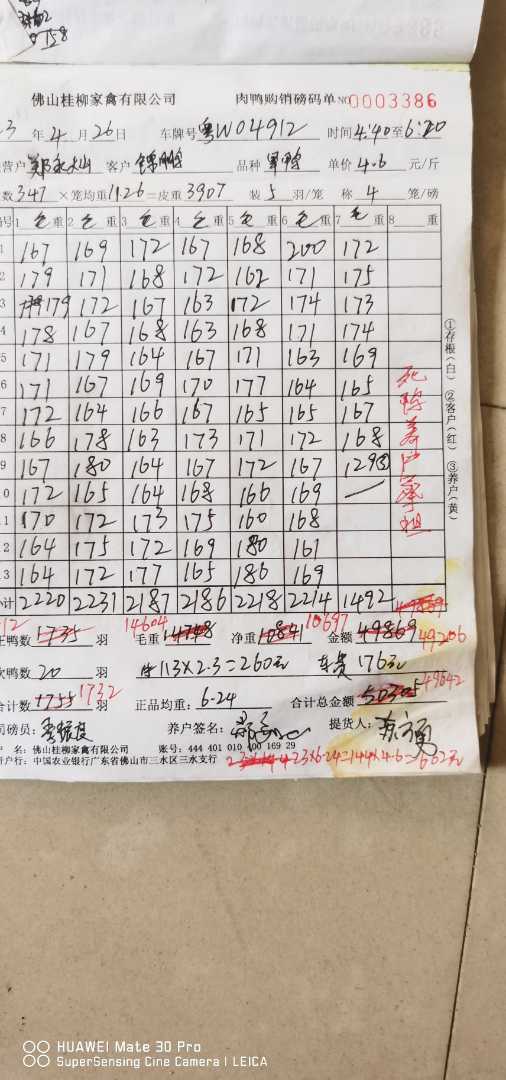 158
佛山桂柳家禽有限公司 肉鸭购销磅码单 NO 0003386
3 年 4 月 26 日 车牌号 粤W04912 时间 4:40 至 6:20
营户 客户 品种 单价 4.6 元/斤
数 347 ×笼均重 11.26 =皮重 3907 装 5 羽/笼 称 4 笼/磅
号 1 毛 重 2 毛 重 3 毛 重 4 毛 重 5 毛 重 6 毛 重 7 毛 重 8 重
1 167 169 172 167 168 200 172
2 179 171 168 172 162 171 175
3 179 172 167 163 172 174 173
4 178 167 168 163 168 171 174
5 171 179 164 167 171 163 169
6 171 167 169 170 177 164 165
7 172 164 166 167 165 165 167
8 166 178 163 173 171 172 168
9 167 180 164 167 172 167 129③
0 172 165 164 168 166 169 —
1 170 172 173 175 160 168
2 164 175 172 169 180 161
3 164 172 177 165 186 169
小计 2220 2231 2187 2186 2218 2214 1492 49869
死鸭养户承担
①存根(白) ②客户(红) ③养户(黄)
12 14604 10697
正鸭数 1735 羽 毛重 14748 净重 10841 金额 49869 49206
次鸭数 20 羽 113×2.3=260元 车费 176元
合计数 1755 1732 羽 正品均重: 6.24 合计总金额 50305 49642
司磅员: 养户签名: 提货人:
户 名: 佛山桂柳家禽有限公司 账号: 444 401 010 400 169 29
开户行: 中国农业银行广东省佛山市三水区三水支行 23×6.24=144×4.6=662元
HUAWEI Mate 30 Pro
SuperSensing Cine Camera | LEICA